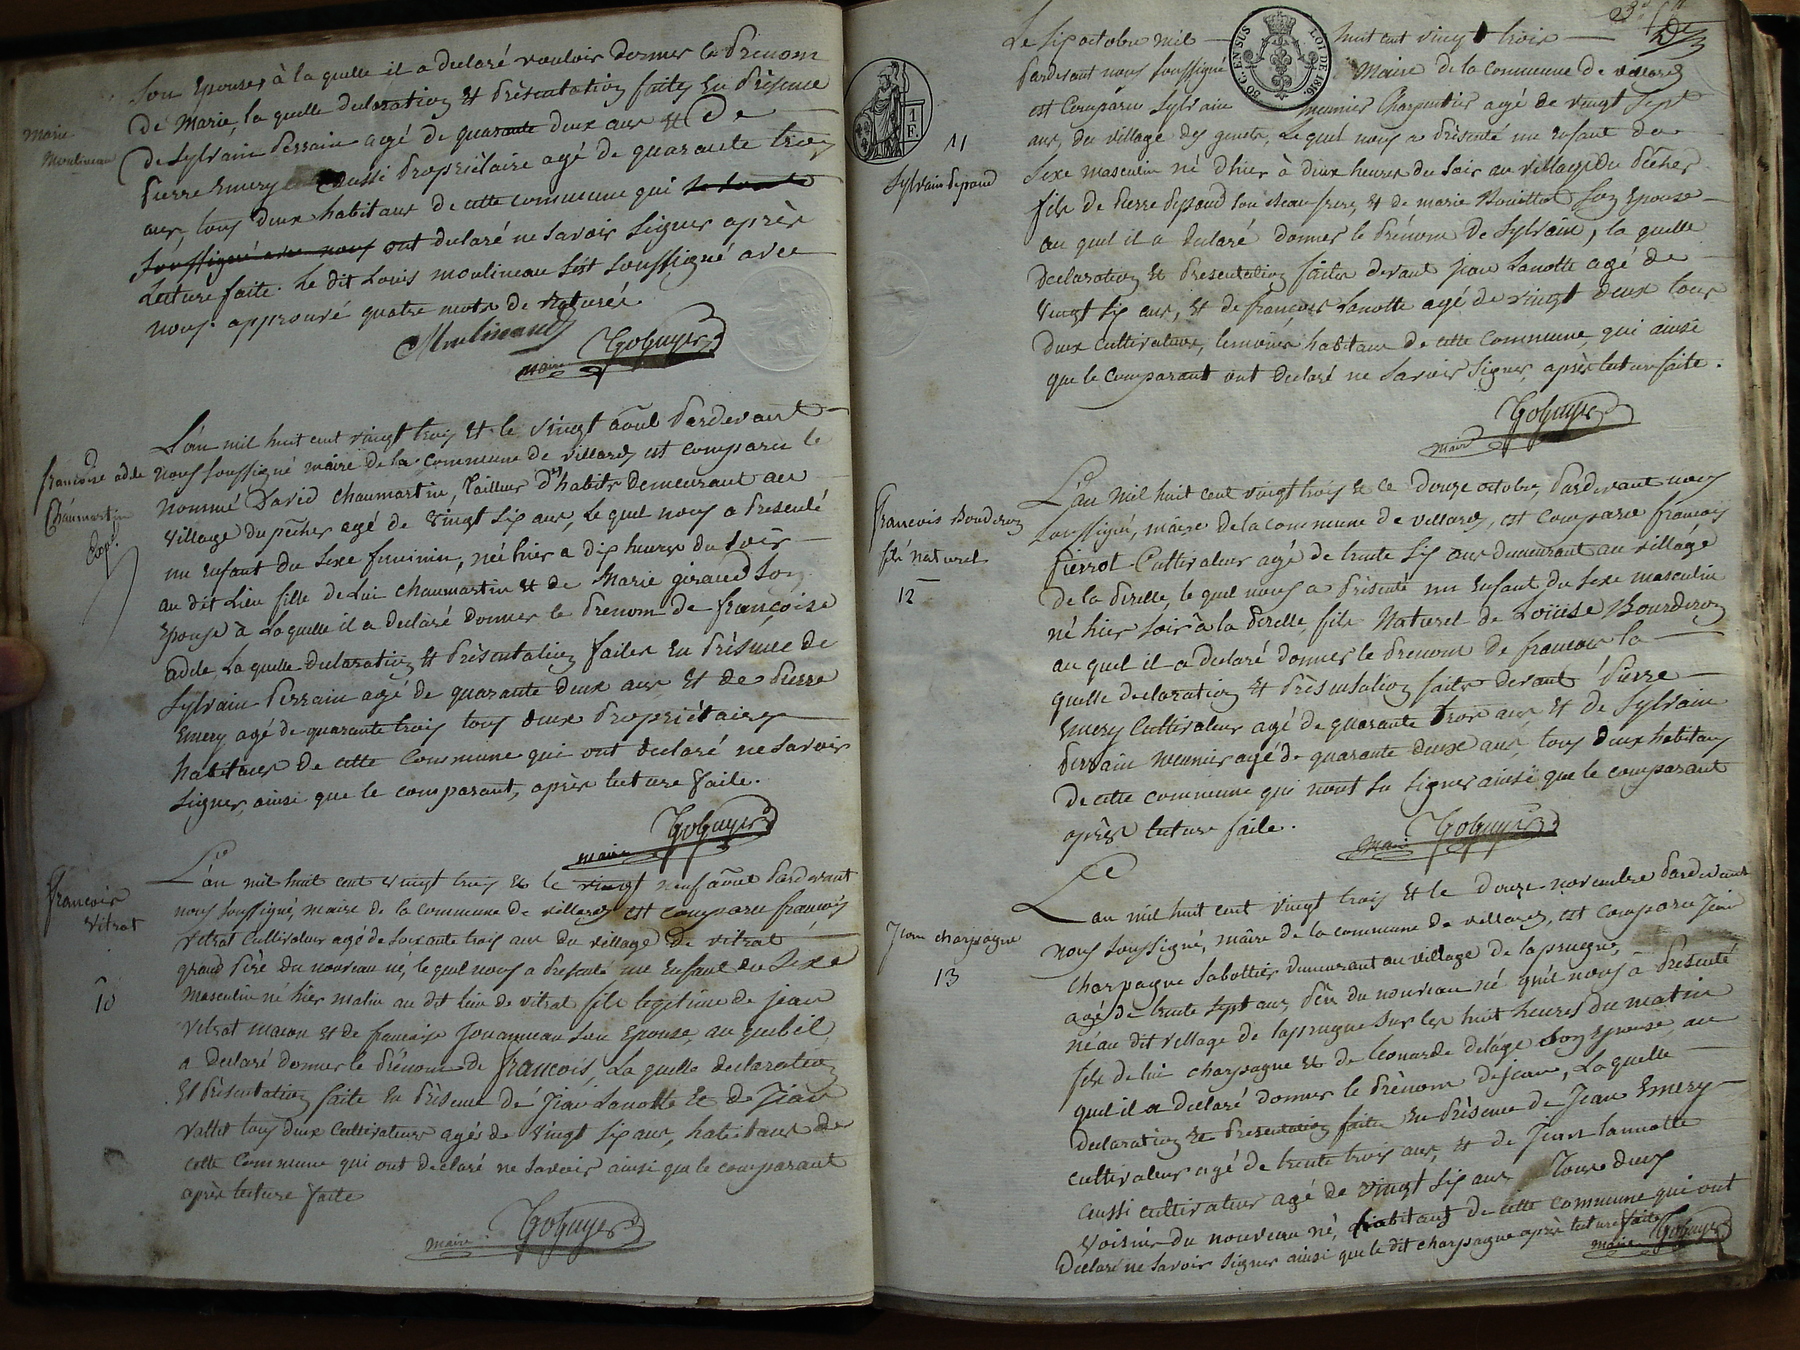 son Epouse, à la quelle il a declaré vouloir donner le Prenom
de Marie, la quelle declaration et Présentation faites En Présence
de Sylvain Perrain agé de quarante deux ans et De
Pierre Emery aussi Propriétaire agé de quarante trois
ans, tous deux habitans de cette commune qui se sont
soussigné avec nous ont declaré ne savoir signer après
lecture faite. le dit Louis moulineau s'est soussigné avec
nous. approuvé quatre mots de raturés.
Moulineau
Maire GoGuyer
Marie
Moulineau
L'an mil huit cent vingt trois et le vingt août Pardevant
nous soussigné maire de la commune de villard est comparu le
nommé David chaumartin, Tailleur d'habits demeurant au
village du pêcher agé de vingt six ans, le quel nous a Presenté
un Enfant du sexe feminin, né hier a dix heures du soir
au dit Lieu fille de Lui chaumartin et de Marie giraud son
Epouse à Laquelle il a declaré donner le Prenom de françoise
adele La quelle declaration et Présentation faites En Présence de
Sylvain Perrain agé de quarante deux ans et de Pierre
Emery agé de quarante trois tous deux Propriétaires
habitans de cette Commune qui ont declaré ne savoir
signer, ainsi que le comparant, après lecture faite.
Maire GoGuyer
françoise adele
Chaumartin
L'an mil huit cent vingt trois et le vingt neuf août Pardevant
nous soussigné, maire de la commune de villard est comparu françois
vitrat Cultivateur agé de soixante trois ans du village de vitrat
grand Père du nouveau né, le quel nous a Presenté un Enfant du Sexe
Masculin né hier matin au dit lieu de vitrat fils legitime de jean
vitrat macon et de françoise Jouanneau son Epouse, au quel il
a declaré donner le Prénom de françois, La quelle declaration
Et Présentation faite En Présence de Jean Lanotte et de Jean
vallet tous deux Cultivateurs agés de vingt six ans, habitans de
cette Commune qui ont declaré ne savoir ainsi que le comparant
après lecture faite
maire. GoGuyer
françois
vitrat
10
Le six octobre mil huit cent vingt trois
Pardevant nous soussigné Maire de la Commune de villard
est Comparu Sylvain meunier Charpentier agé de vingt sept
ans, du village des genets, Le quel nous a Présenté un Enfant du
Sexe masculin né d'hier à deux heures du soir au village du Pécher
fils de Pierre Pejoud son Beau frere, et de marie Bouillot son Epouse
au quel il a declaré donner le Prénom de Sylvain, la quelle
declaration et Presentation faite devant Jean Lanotte agé de
vingt six ans, et de françois Lanotte agé de vingt deux tous
deux cultivateurs, temoins habitans de cette Commune, qui ainsi
que le comparant ont declaré ne savoir signer, après lecture faite.
maire GoGuyer
BUG. EN SUS LOI DE 1816.
1 F.
11
Sylvain Pejoud
L'an mil huit cent vingt trois et le Douze octobre, Pardevant nous
soussigné, maire de la commune de villard, est comparu françois
Pierrot Cultivateur agé de trente six ans demeurant au village
de la Pirelle, le quel nous a Présenté un Enfant du Sexe masculin
né hier soir à la Pirelle, fils Naturel de Louise Bourderon
au quel il a declaré donner le Prenom de francois la
quelle declaration et Présentation faite devant Pierre
Emery Cultivateur agé de quarante trois ans et de Sylvain
Perrain meunier agé de quarante deux ans tous deux habitans
de cette commune qui n'ont su signer ainsi que le comparant
après lecture faite.
Maire GoGuyer
francois Bouderon
fils naturel
12
L'an mil huit cent vingt trois et le Douze novembre Pardevant
nous soussigné, mâire de la commune de villard, est comparu Jean
charpagne sabottier Demeurant au village de laprugne,
agé de trente sept ans, Père du nouveau né qu'il nous a Presenté
né au dit village de laprugne sur les huit heures du matin
fils de lui charpagne et de leonarde delage son Epouse, au
quel il a declaré donner le Prénom de jean, La quelle
declaration et Presentation faite En Présence de Jean Emery
cultivateur agé de trente trois ans, et de Jean Lannotte
aussi cultivateur agé de vingt six ans Tous deux
voisins du nouveau né, habitans de cette commune qui ont
Declaré ne savoir signer ainsi que le dit charpagne après lecture faite
maire GoGuyer
Jean charpagne
13